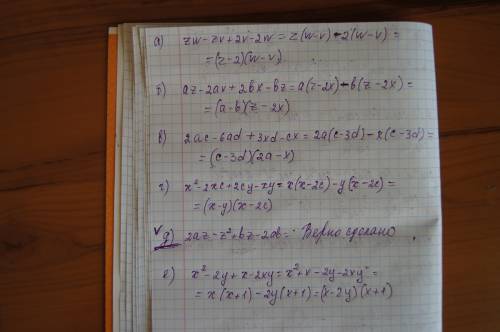 а) zw-zv+2v-2w=z(w-v)-2(w-v)=
=(z-2)(w-v)
б) az-2ax+2bx-bz=a(z-2x)-b(z-2x)=
=(a-b)(z-2x)
в) 2ac-6ad+3xd-cx=2a(c-3d)-x(c-3d)=
=(c-3d)(2a-x)
г) x²-2xc+2cy-xy=x(x-2c)-y(x-2c)=
=(x-y)(x-2c)
√ д) 2az-z²+bz-2ab= Верно сделано
е) x²-2y+x-2xy=x²+x-2y-2xy=
=x(x+1)-2y(x+1)=(x-2y)(x+1)